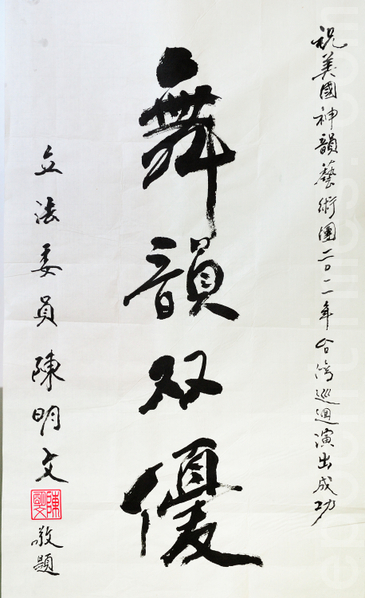 祝美國神韻藝術團二〇一一年台灣巡迴演出成功
舞韻双優
立法委員陳明文
敬題